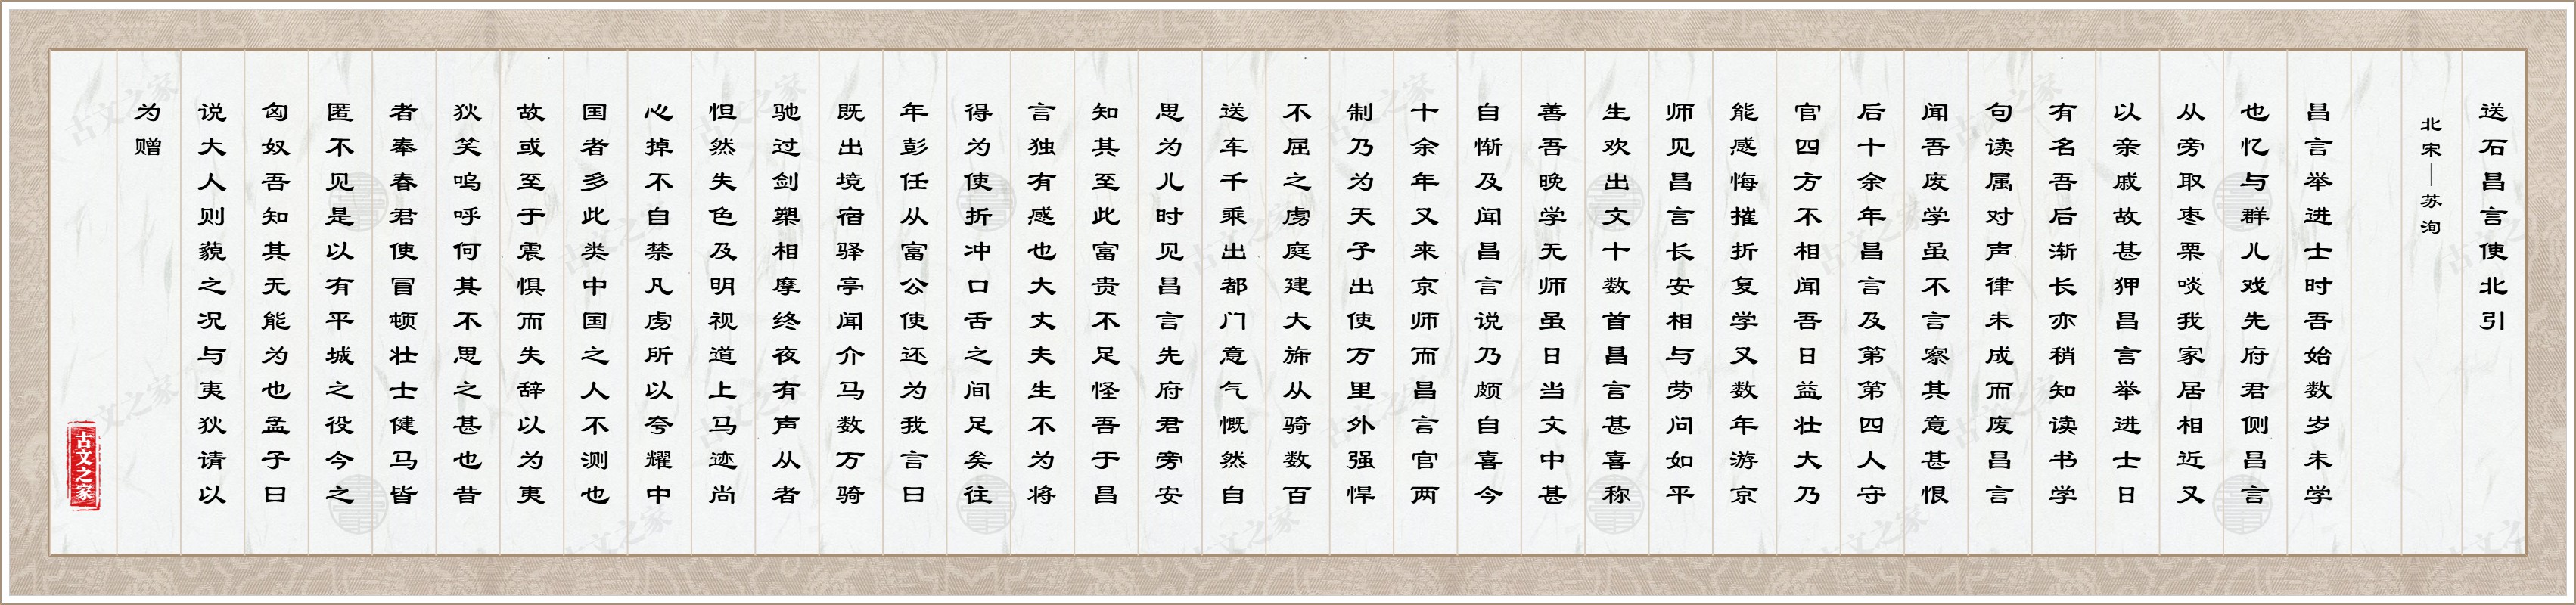 送石昌言使北引
北宋—苏洵
昌言举进士时吾始数岁未学
也忆与群儿戏先府君侧昌言
从旁取枣栗啖我家居相近又
以亲戚故甚狎昌言举进士日
有名吾后渐长亦稍知读书学
句读属对声律未成而废昌言
闻吾废学虽不言察其意甚恨
后十余年昌言及第第四人守
官四方不相闻吾日益壮大乃
能感悔摧折复学又数年游京
师见昌言长安相与劳问如平
生欢出文十数首昌言甚喜称
善吾晚学无师虽日当文中甚
自惭及闻昌言说乃颇自喜今
十余年又来京师而昌言官两
制乃为天子出使万里外强悍
不屈之虏庭建大旆从骑数百
送车千乘出都门意气慨然自
思为儿时见昌言先府君旁安
知其至此富贵不足怪吾于昌
言独有感也大丈夫生不为将
得为使折冲口舌之间足矣往
年彭任从富公使还为我言曰
既出境宿驿亭闻介马数万骑
驰过剑槊相摩终夜有声从者
怛然失色及明视道上马迹尚
心掉不自禁凡虏所以夸耀中
国者多此类中国之人不测也
故或至于震惧而失辞以为夷
狄笑呜呼何其不思之甚也昔
者奉春君使冒顿壮士健马皆
匿不见是以有平城之役今之
匈奴吾知其无能为也孟子曰
说大人则藐之况与夷狄请以
为赠
古文之家